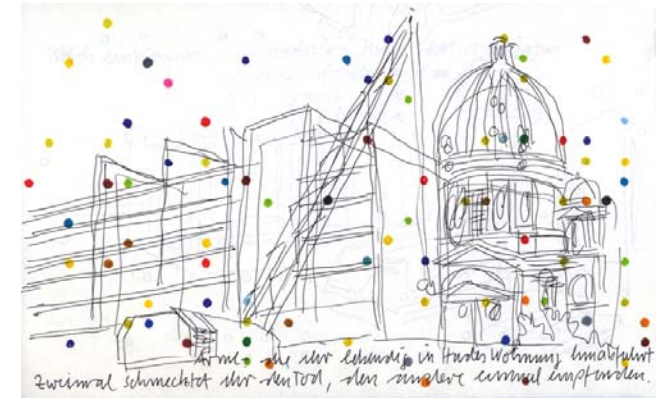 Arme die ihr lebendig in Hades Wohnung hinabfuhrt
Zweimal schmecktet ihr den Tod, den andere einmal empfinden.